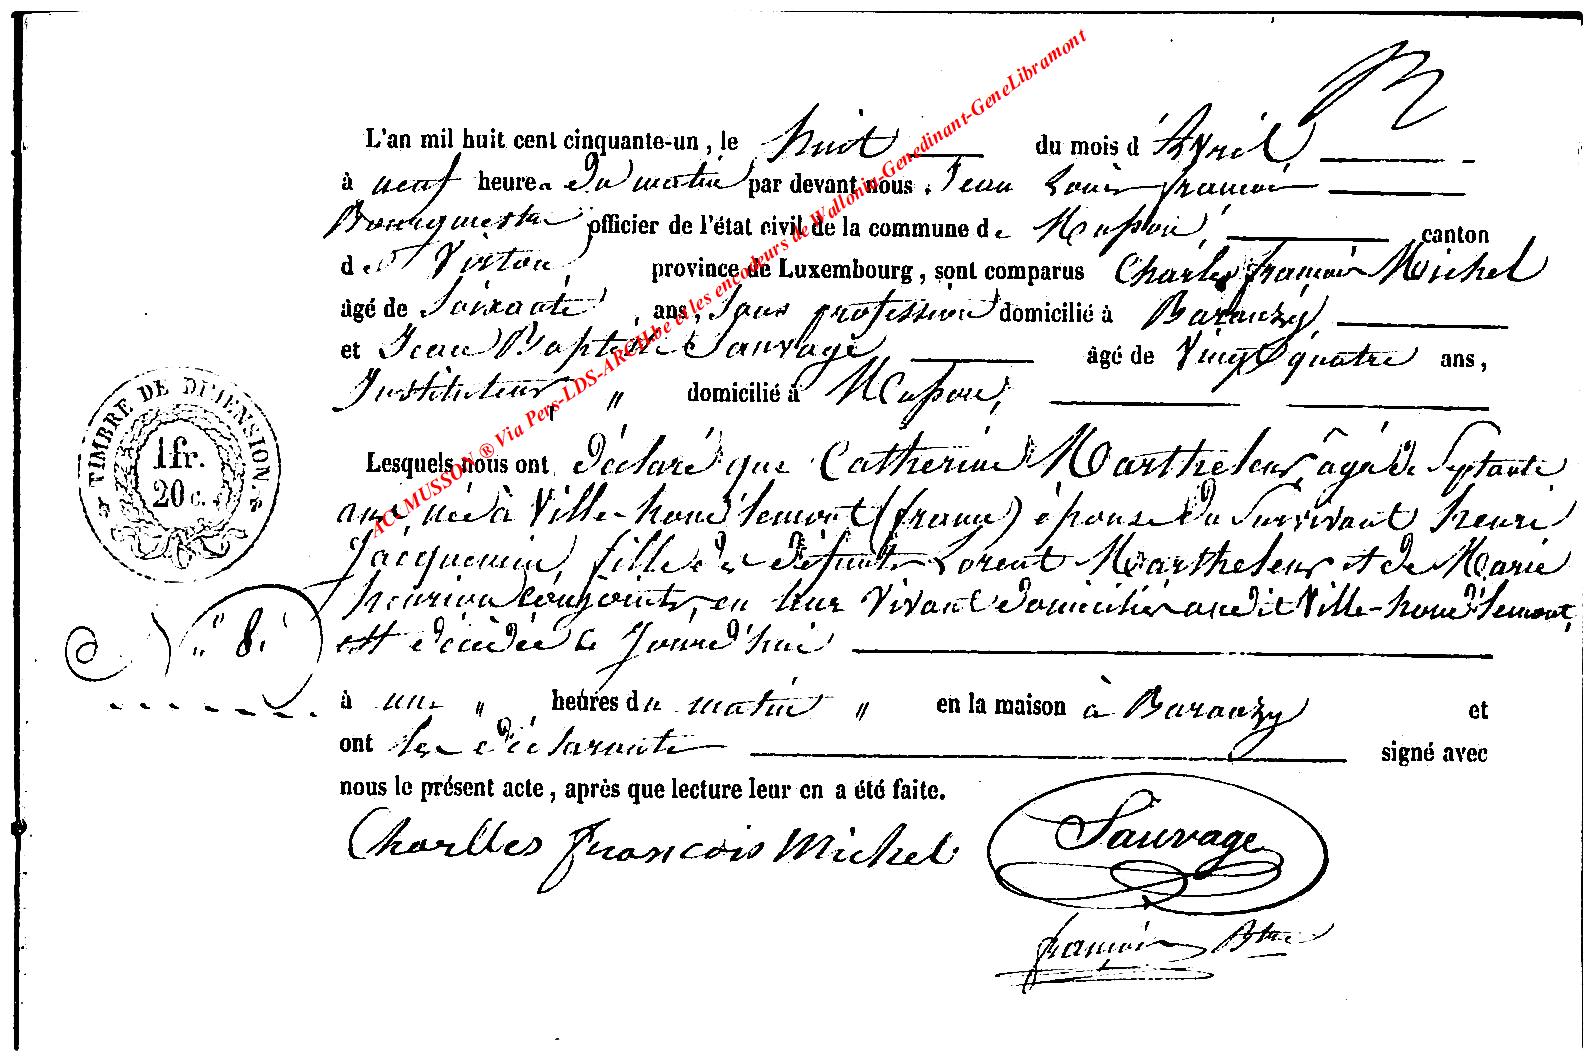 L'an mil huit cent cinquante-un, le huit du mois d'Avril,
à neuf heures du matin par devant nous, Jean Louis françois
Bourguestre officier de l'état civil de la commune de Musson, canton
de Virton, province de Luxembourg, sont comparus Charles françois Michel
âgé de Soixante, ans, Sans profession domicilié à Baranzy,
et Jean Baptiste Sauvage âgé de Vingt quatre ans,
Instituteur " domicilié à Musson,
Lesquels nous ont déclaré que Catherine Martheleur, âgée de Septante
ans, née à Ville-houd'lemont (france) épouse du Survivant henri
Jacquemin, fille des défunts Lorent Martheleur et de Marie
henrion Conjoints, en leur vivant domiciliés audit Ville-houd'lemont,
est décédée ce Jourd'hui
N° 8.
à une " heures du matin " en la maison à Baranzy et
ont les déclarants signé avec
nous le présent acte, après que lecture leur en a été faite.
Charlles françois Michel
Sauvage
françois Btre
TIMBRE DE DIMENSION.
1 fr.
20 c.
ACCMUSSON ® Via Pers-LDS-ARCH.be et les encodeurs de Wallonia-Genedinant-GeneLibramont